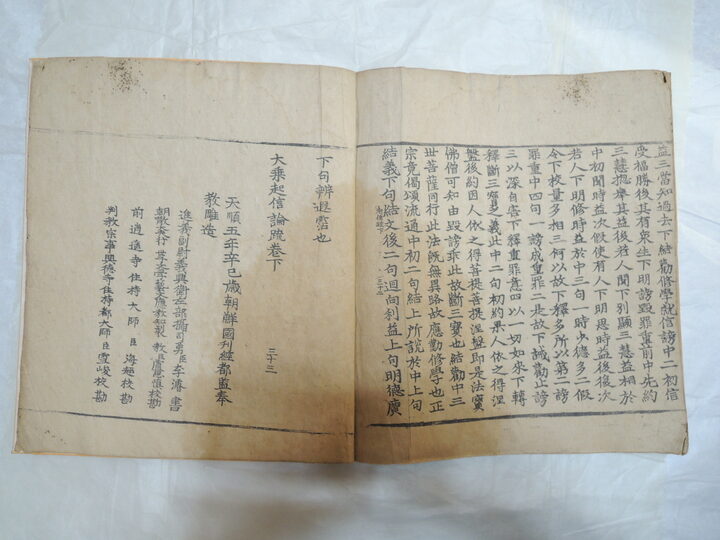 益三當知過去下結勸修學就信謗中二初信
受福勝後其有衆生下明謗毀罪重前中先約
三慧揔舉其益後若人聞下別顯三慧益相於
中初聞時益次假使有人下明思時益後復次
若人下明修時益於中三句一時少德多二假
令下校量多相三何以故下釋多所以第二謗
罪重中四句一謗成重罪二是故下誡勸止謗
三以深自害下釋重罪意四以一切如來下轉
釋斷三寶之義此中二句初約果人依之得涅
盤後約因人依之得菩提菩提涅盤即是法寶
佛僧可知由毀謗乖此故斷三寶也結勸中三
世菩薩同行此法旣無異路故應勤修學也正
宗竟偈頌流通中初二句結上所說於中上句
結義下句結文後二句迴向利益上句明德廣
下句辨遐霑也
大乘起信論疏卷下
三十三
天順五年辛巳歲朝鮮國刊經都監奉
教雕造
進義副尉義興衛左部攝司勇臣李 書
前逍遙寺住持大師臣海超校勘
判教宗事興德寺住持都大師臣雪峻校勘